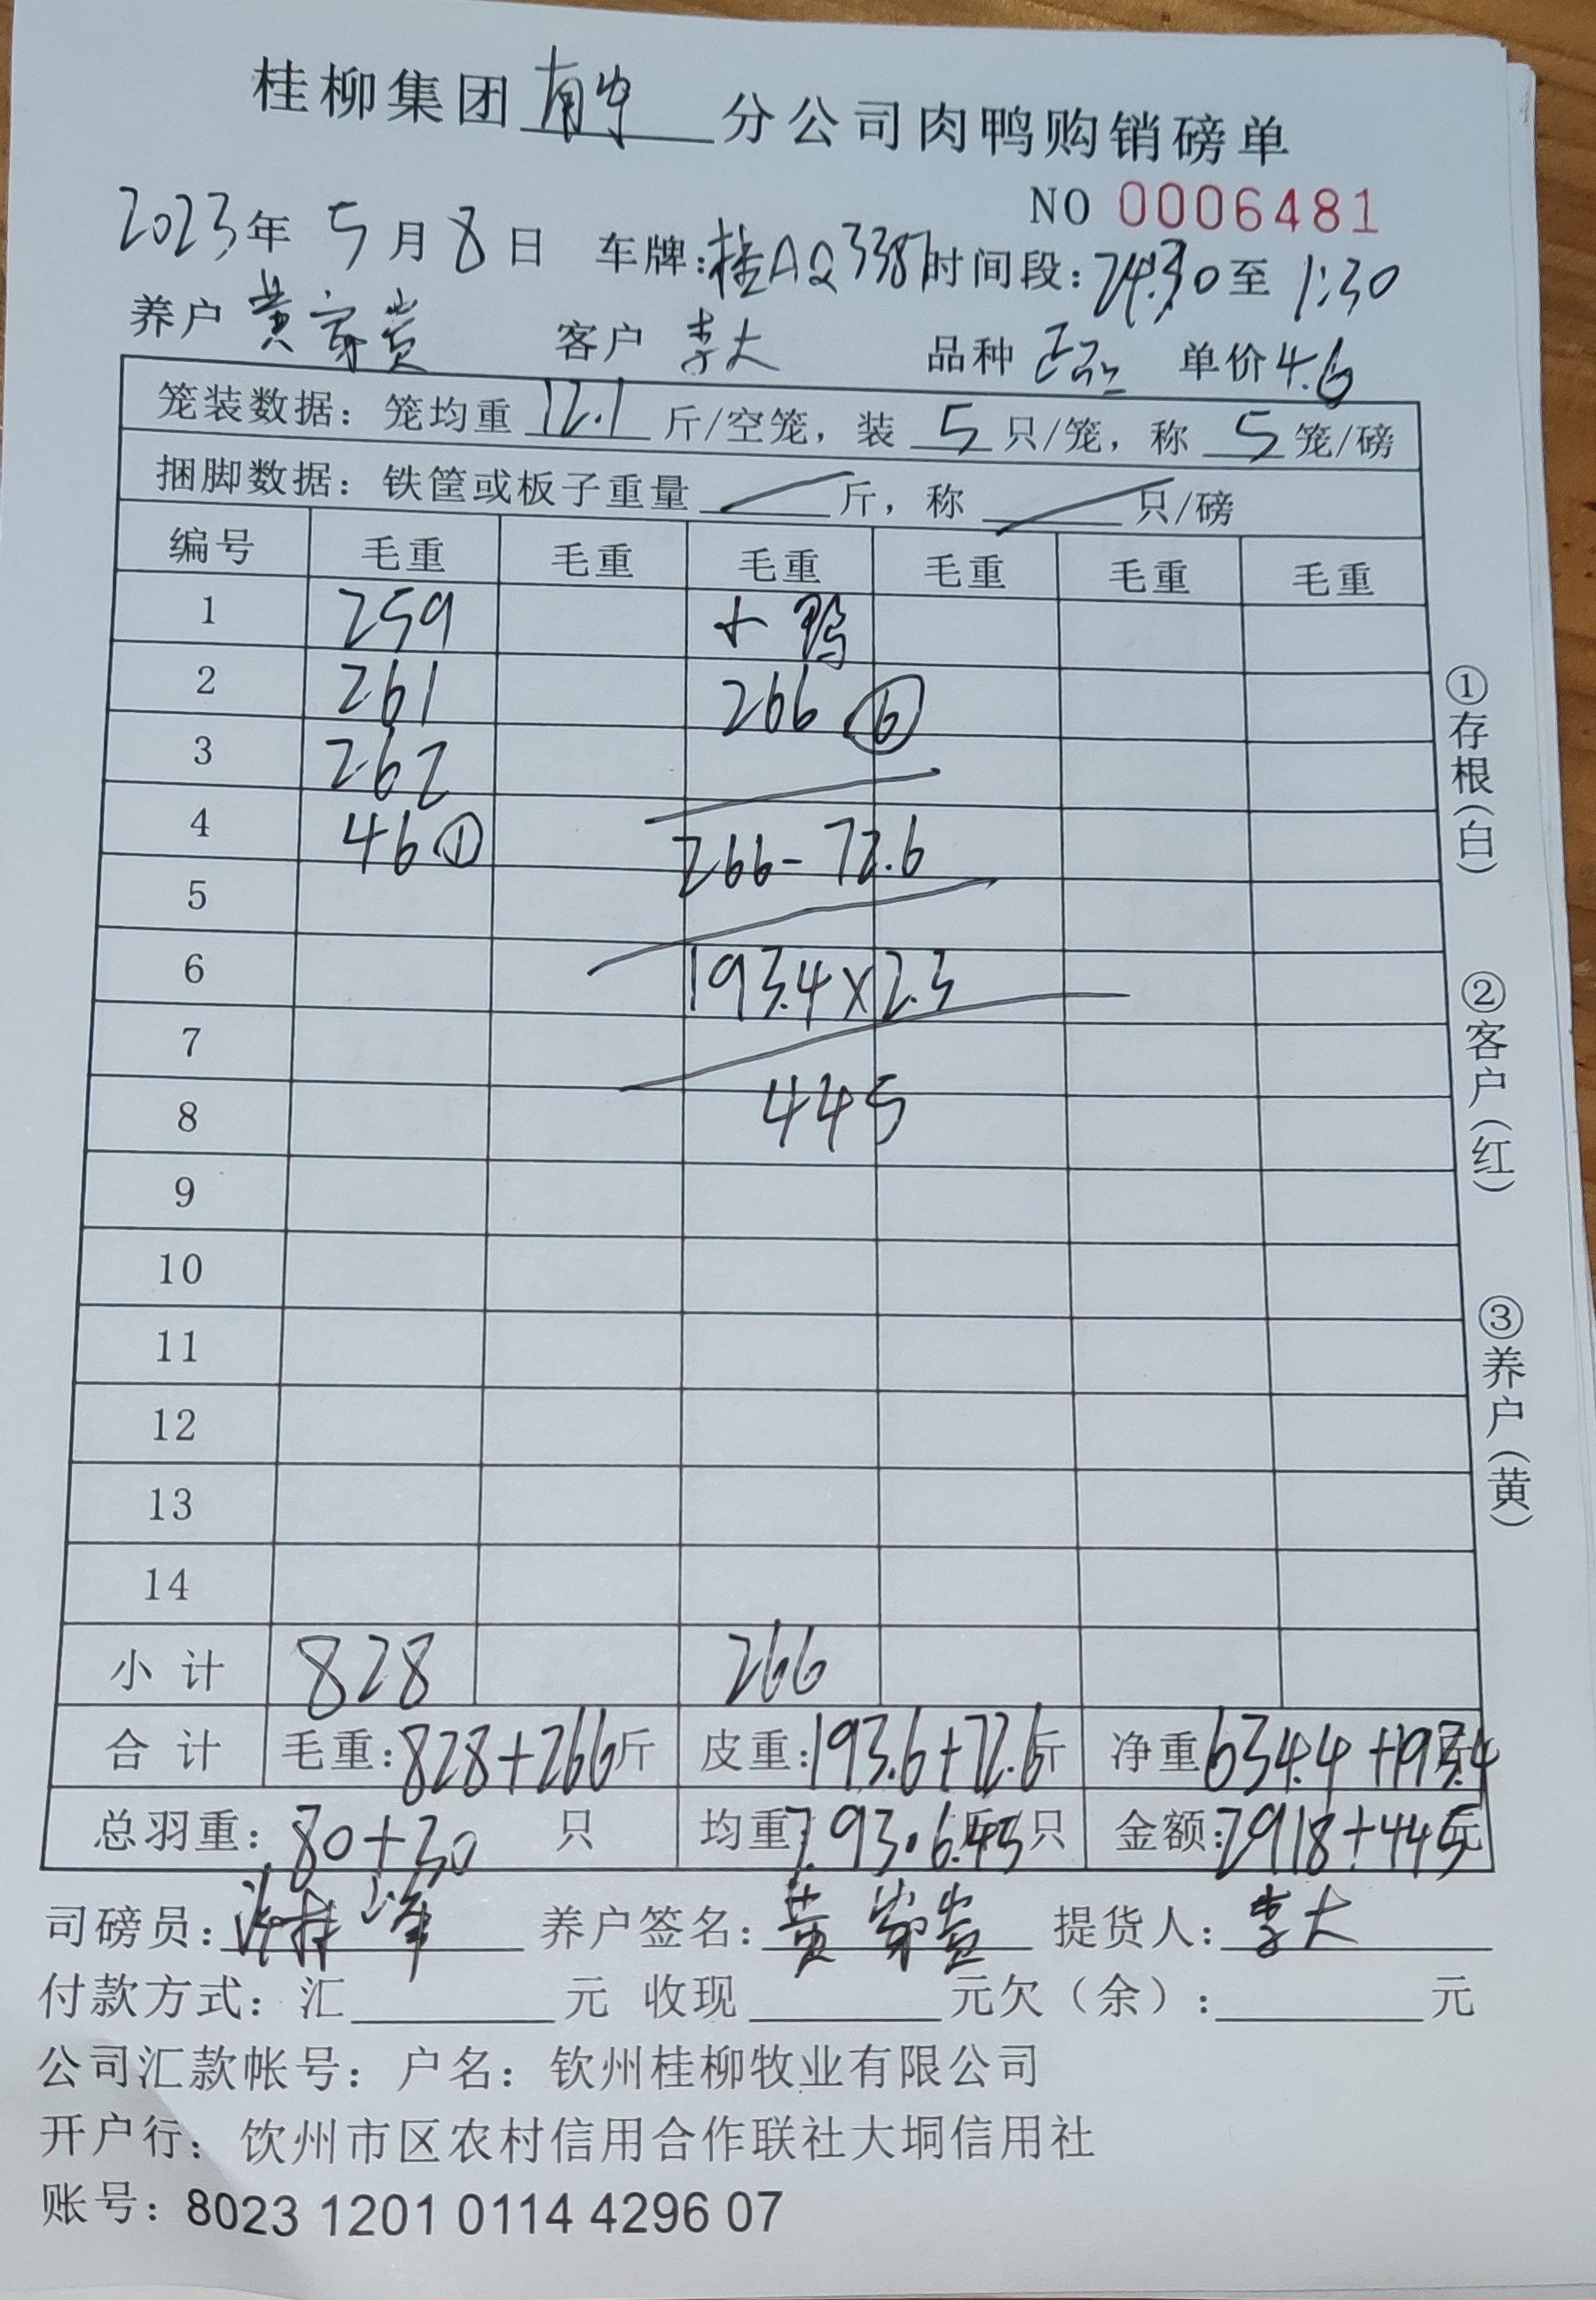 桂柳集团南宁分公司肉鸭购销磅单
NO 0006481
2023年 5月8日 车牌:桂AQ3387 时间段:24:30至 1:30
养户 黄 客户 李大 品种 单价4.6
笼装数据: 笼均重 12.1 斤/空笼, 装 5 只/笼, 称 5 笼/磅
捆脚数据: 铁筐或板子重量 / 斤, 称 / 只/磅
编号 毛重 毛重 毛重 毛重 毛重 毛重
1 259 小鸭
2 261 266 ⑥
3 262
4 46 ① 266-72.6
5
6 193.4×2.3
7
8 445
9
10
11
12
13
14
小计 828 266
合计 毛重:828+266斤 皮重:193.6+72.6斤 净重634.4+193.4
总羽重:80+30 只 均重7.93 6.45只 金额:2918+445元
司磅员: 养户签名:黄 提货人:李大
付款方式: 汇 元 收现 元欠(余): 元
公司汇款帐号: 户名: 钦州桂柳牧业有限公司
开户行: 饮州市区农村信用合作联社大垌信用社
账号: 8023 1201 0114 4296 07
①存根(白)
②客户(红)
③养户(黄)